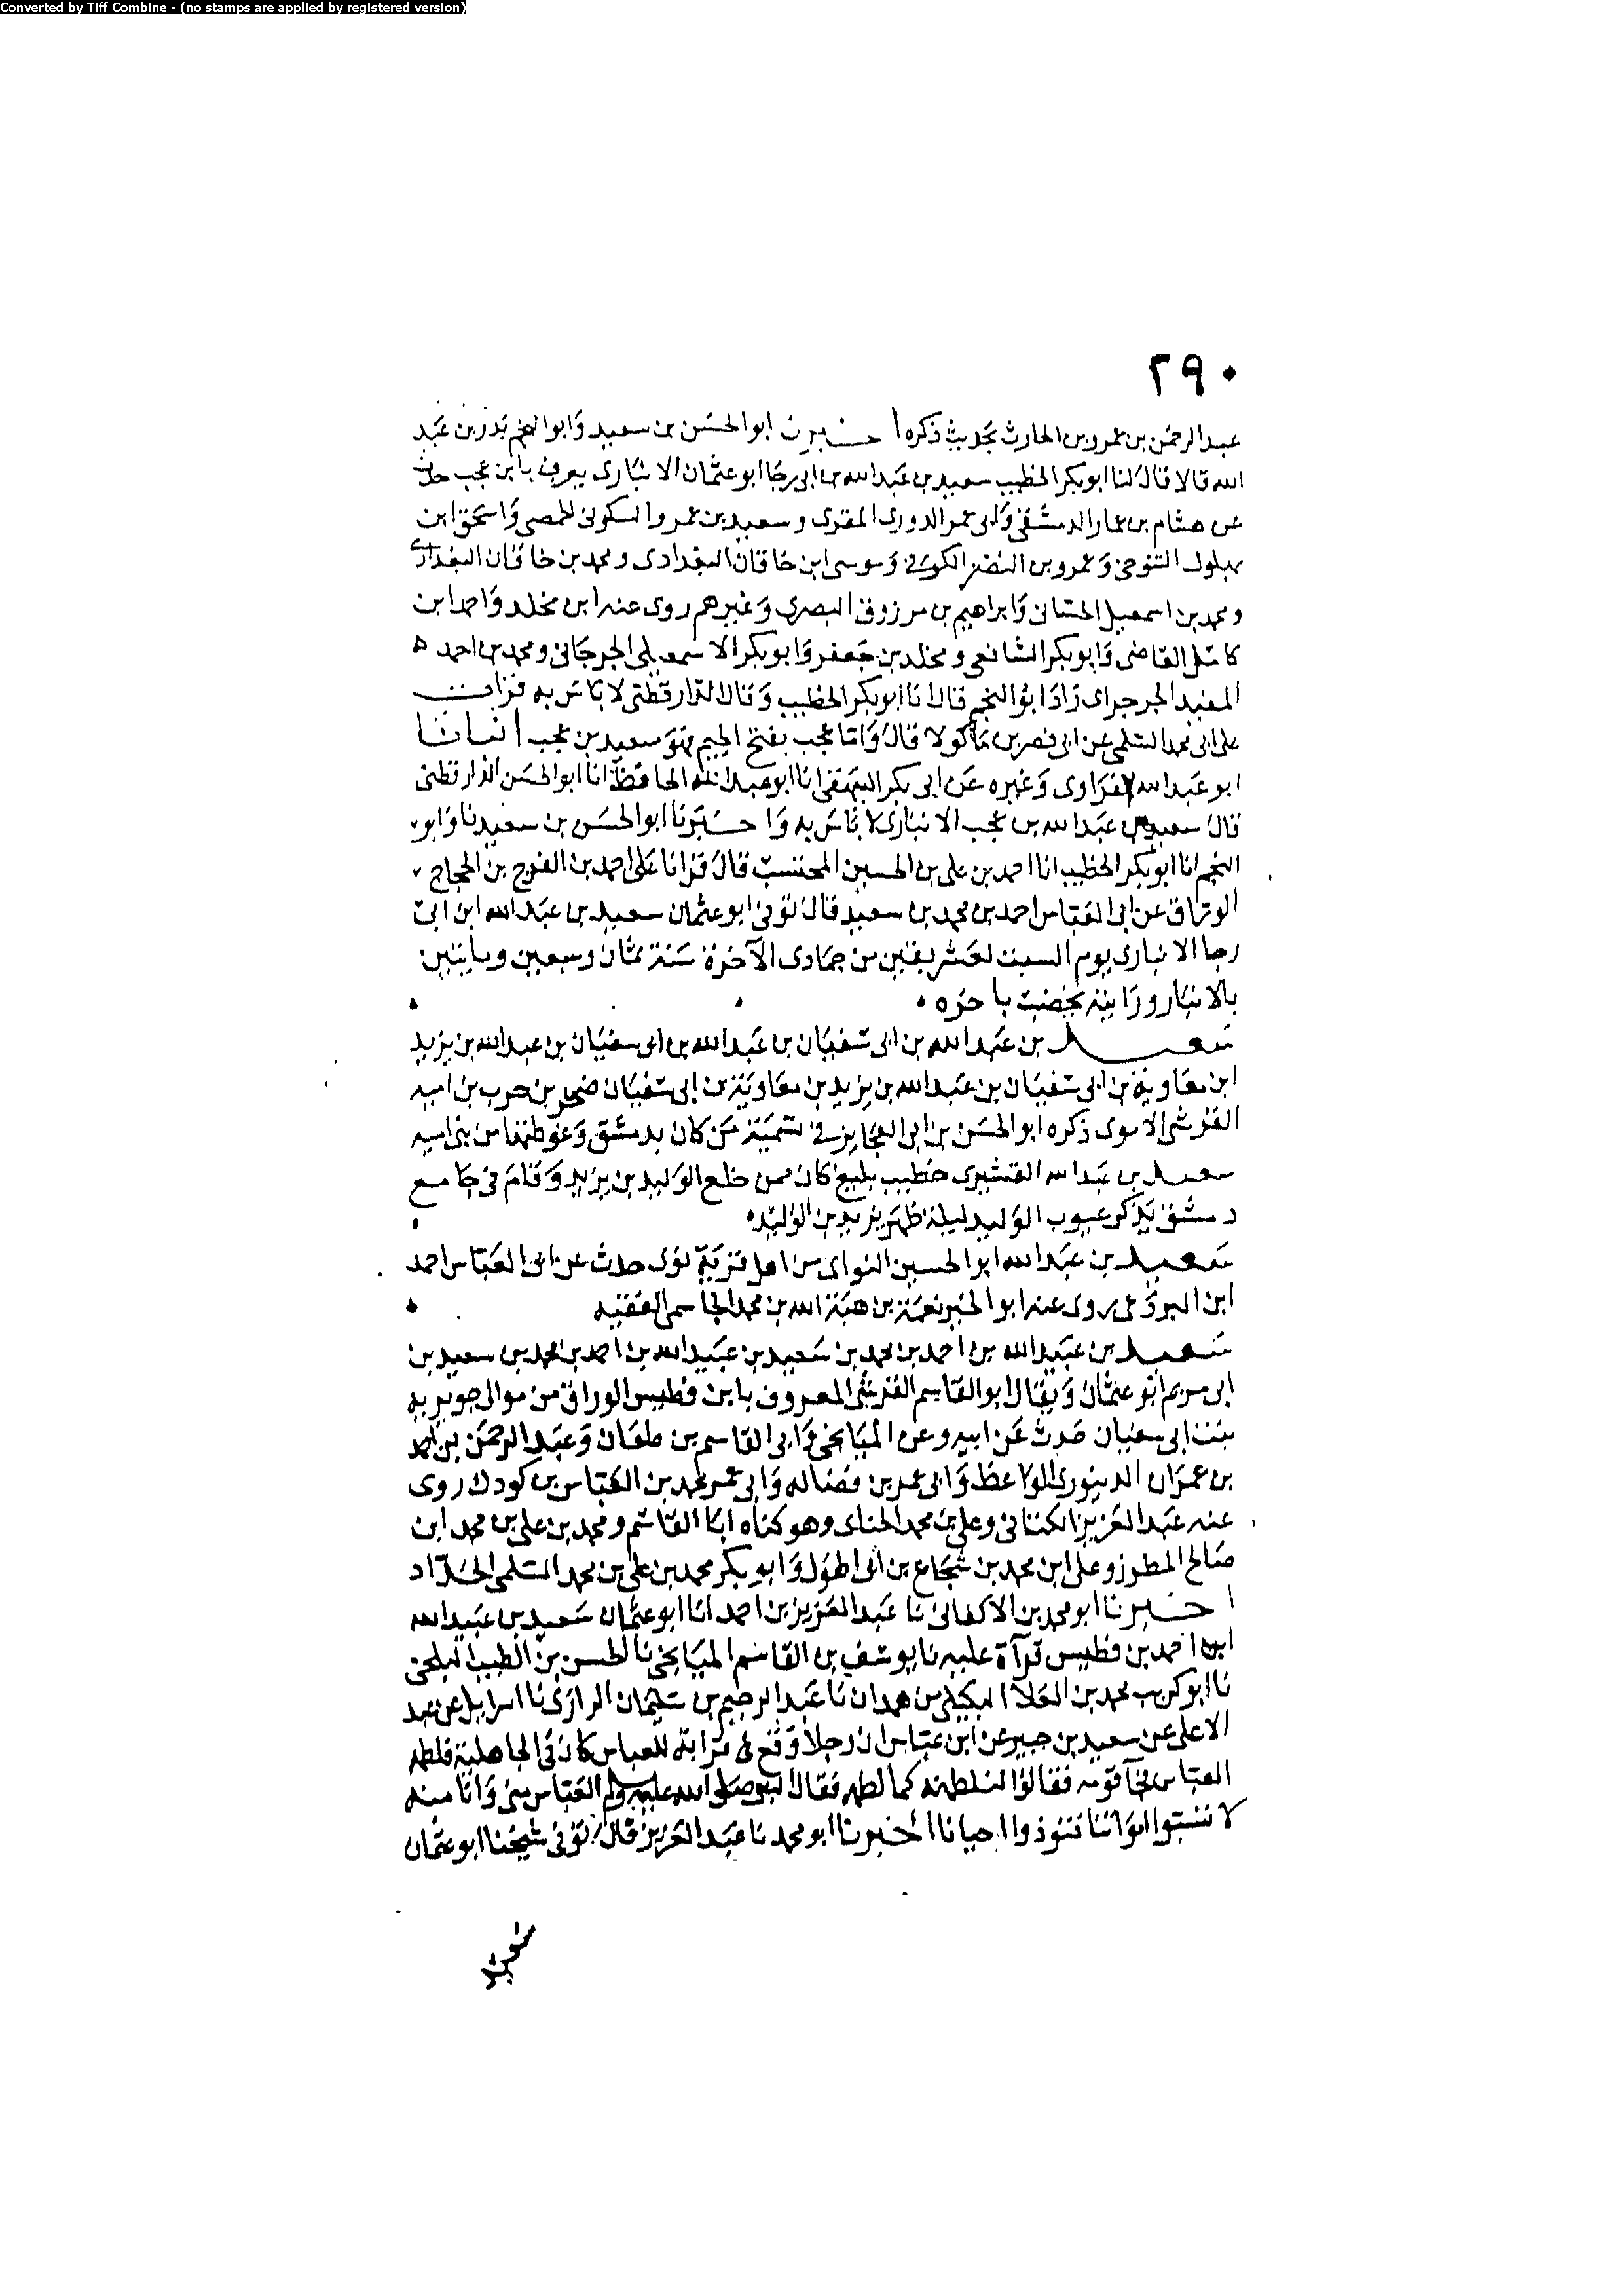 Converted by Tiff Combine - (no stamps are applied by registered version)
٢٩٠
عبد الرحمن بن عمرو بن الحارث بحديث ذكره اخبرنا ابو الحسن بن سعيد وابو النجم بدر بن عبد
الله قالا قال لنا ابو بكر الخطيب سعيد بن عبد الله بن ابى رجا ابو عثمان الانبارى يعرف بابن عجب حدث
عن هشام بن عمار الدمشقى وابى عمر الدورى المقرى وسعيد بن عمرو السكونى الحمصى واسحق ابن
بهلول التنوخى وعمرو بن النضر الكوفى وموسى ابن خاقان البغدادى ومحمد بن خاقان البغدادى
ومحمد بن اسمعيل الحسانى وابراهيم بن مرزوق البصرى وغيرهم روى عنه ابن مخلد واحمد ابن
كامل القاضى وابو بكر الشافعى ومخلد بن جعفر وابو بكر الاسمعيلى الجرجانى ومحمد بن احمد
المفيد الجرجراى زاد ابو النجم قال انا ابو بكر الخطيب وقال الدارقطنى لا باس به قرات
على ابى محمد السلمى عن ابى نصر بن ماكولا قال واما عجب بفتح الجيم فهو سعيد بن عجب انبانا
ابو عبد الله الفراوى وغيره عن ابى بكر البيهقى انا ابو عبد الله الحافظ انا ابو الحسن الدارقطنى
قال سعيد بن عبد الله بن عجب الانبارى لا باس به واخبرنا ابو الحسن بن سعيد نا وابو
النجم انا ابو بكر الخطيب انا احمد بن على بن الحسين المحتسب قال قرانا على احمد بن الفرج بن الحجاج
الوراق عن ابى العباس احمد بن محمد بن سعيد قال توفى ابو عثمان سعيد بن عبد الله ابن ابى
رجا الانبارى يوم السبت لعشر بقين من جمادى الآخرة سنة ثمان وسبعين ومايتين
بالانبار ورايته يخضب باحره
سعيد بن عبد الله بن ابى سفيان بن عبد الله بن ابى سفيان بن عبد الله بن يزيد
ابن معاوية بن ابى سفيان بن عبد الله بن يزيد بن معاوية بن ابى سفيان صخر بن حرب بن اميه
القرشى الاموى ذكره ابو الحسن بن ابى العجايز فى تسمية من كان بدمشق وغوطتها من بنى اميه
سعيد بن عبد الله القشيرى خطيب بليغ كان ممن خلع الوليد بن يزيد وقام فى جامع
دمشق يذكر عيوب الوليد ليلة ظهر يزيد بن الوليد
سعيد بن عبد الله ابو الحسين النواى من اهل قرية نوى حدث عن ابى العباس احمد
ابن البرذعى روى عنه ابو الخير نعمة بن هبة الله بن محمد الجاسمى الفقيه
سعيد بن عبيد الله بن احمد بن محمد بن سعيد بن عبيد الله بن احمد بن محمد بن سعيد بن
ابى مريم ابو عثمان ويقال ابو القاسم القرشى المعروف بابن فطيس الوراق من موالى جويريه
بنت ابى سفيان حدث عن ابيه وعن الميانجى وابى القاسم بن طعان وعبد الرحمن بن احمد
بن عمران الدينورى الواعظ وابى عمر بن فضاله وابى عمر محمد بن العباس بن كودك روى
عنه عبد العزيز الكتانى وعلى بن محمد الحناى وهو كناه ابا القاسم ومحمد بن على بن محمد ابن
صالح المطرز وعلى ابن محمد بن شجاع بن ابى الهول وابو بكر محمد بن على بن محمد السلمى الحداد
اخبرنا ابو محمد بن الاكفانى نا عبد العزيز بن احمد انا ابو عثمان سعيد بن عبيد الله
ابن احمد بن فطيس قرآة عليه نا يوسف بن القاسم الميانجى نا الحسن بن الطيب البلخى
نا ابو كريب محمد بن العلا البكيلى من همدان نا عبد الرحيم بن سليمان الرازى نا اسرايل عن عبد
الاعلى عن سعيد بن جبير عن ابن عباس ان رجلا وقع فى قرابة للعباس كان فى الجاهلية فلطمه
العباس فجآ قومه فقالوا لنلطمنه كما لطمه فقال النبى صلى الله عليه وسلم العباس منى وانا منه
لا تسبوا امواتنا فتوذوا احيانا اخبرنا ابو محمد نا عبد العزيز قال توفى شيخنا ابو عثمان
سعيد